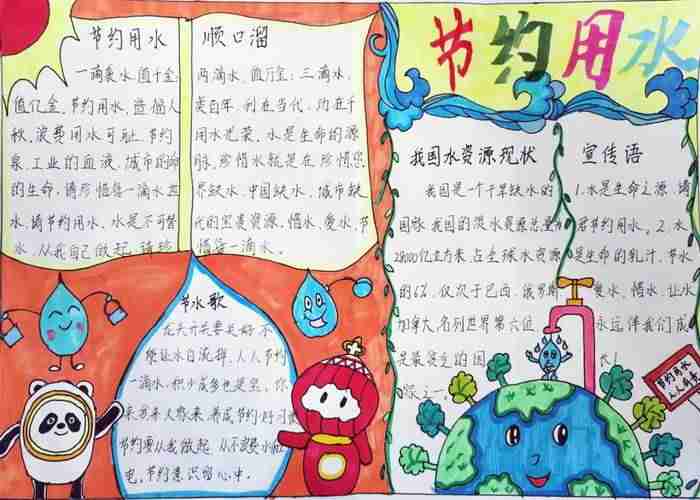 节约用水
节约用水 顺口溜
一滴泉水,值千金;两滴水,值万金;三滴水,
值亿金。节约用水,造福人类百年,利在当代,功在千
秋,浪费用水可耻,节约用水光荣,水是生命的源
泉、工业的血液、城市的命脉,珍惜水就是在珍惜您
的生命,请珍惜每一滴水,世界缺水,中国缺水,城市缺
水,请节约用水,水是不可替代的宝贵资源,惜水、爱水、节
水,从我自己做起,请珍惜每一滴水。
节水歌
龙头开关要关好,不
使让水白流掉,人人节约
一滴水,积少成多也是宝,你
来我来人人都来,养成节约好习惯
节约要从我做起,从不浪费水和
电,节约意识留心中。
我国水资源现状
我国是一个干旱缺水的
国家,我国的淡水资源总量为
28000亿立方米,占全球水资源
的6%,仅次于巴西、俄罗斯
加拿大,名列世界第六位
是最贫乏的国
家之一。
宣传语
1.水是生命之源,请
君节约用水。2.水
是生命的乳汁,节水
爱水、惜水,让水
永远伴我们成
长!
节约用水
人人有责